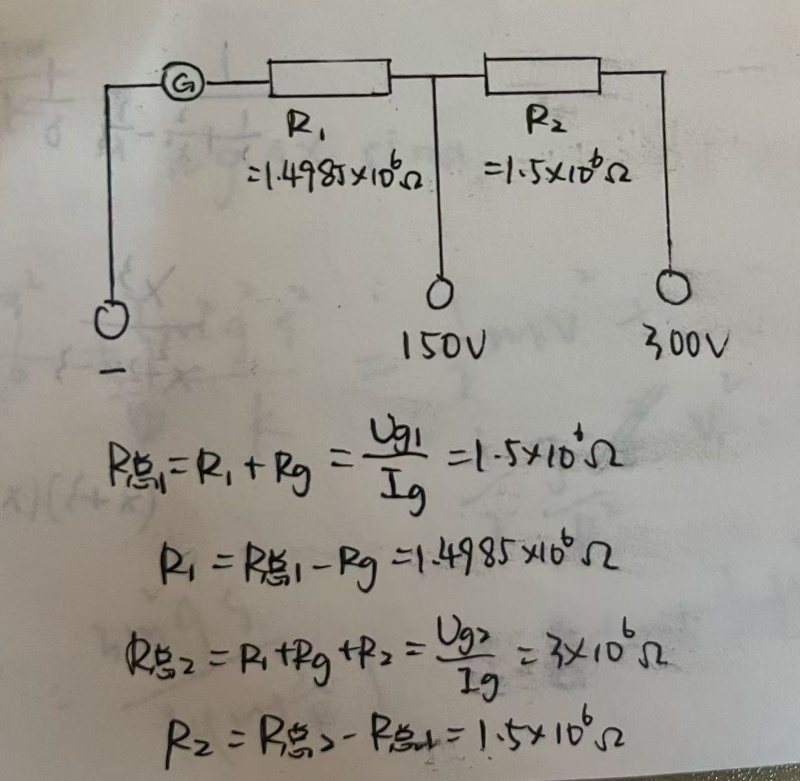 G
R₁
=1.4985×10⁶Ω
R₂
=1.5×10⁶Ω
−
150V
300V
R总₁=R₁+Rg=Ug₁/Ig=1.5×10⁶Ω
R₁=R总₁−Rg=1.4985×10⁶Ω
R总₂=R₁+Rg+R₂=Ug₂/Ig=3×10⁶Ω
R₂=R总₂−R总₁=1.5×10⁶Ω